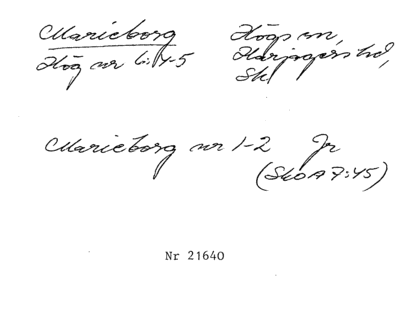 Marieborg Högs sn,
Hög nr 6:4-5 Harjagers hd,
Sk
Marieborg nr 1-2 Jr
(SkO A 7:45)
Nr 21640